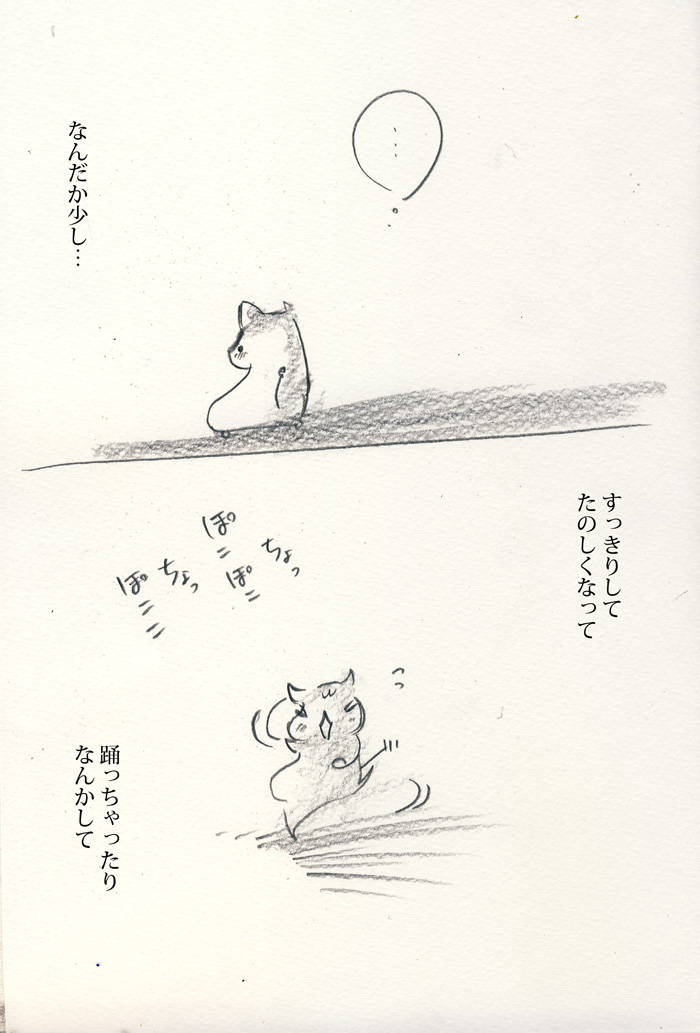 …
なんだか少し…
すっきりして
たのしくなって
ちょっ
ぽこ
ぽこ
ちょっ
ぽこここ
踊っちゃったり
なんかして